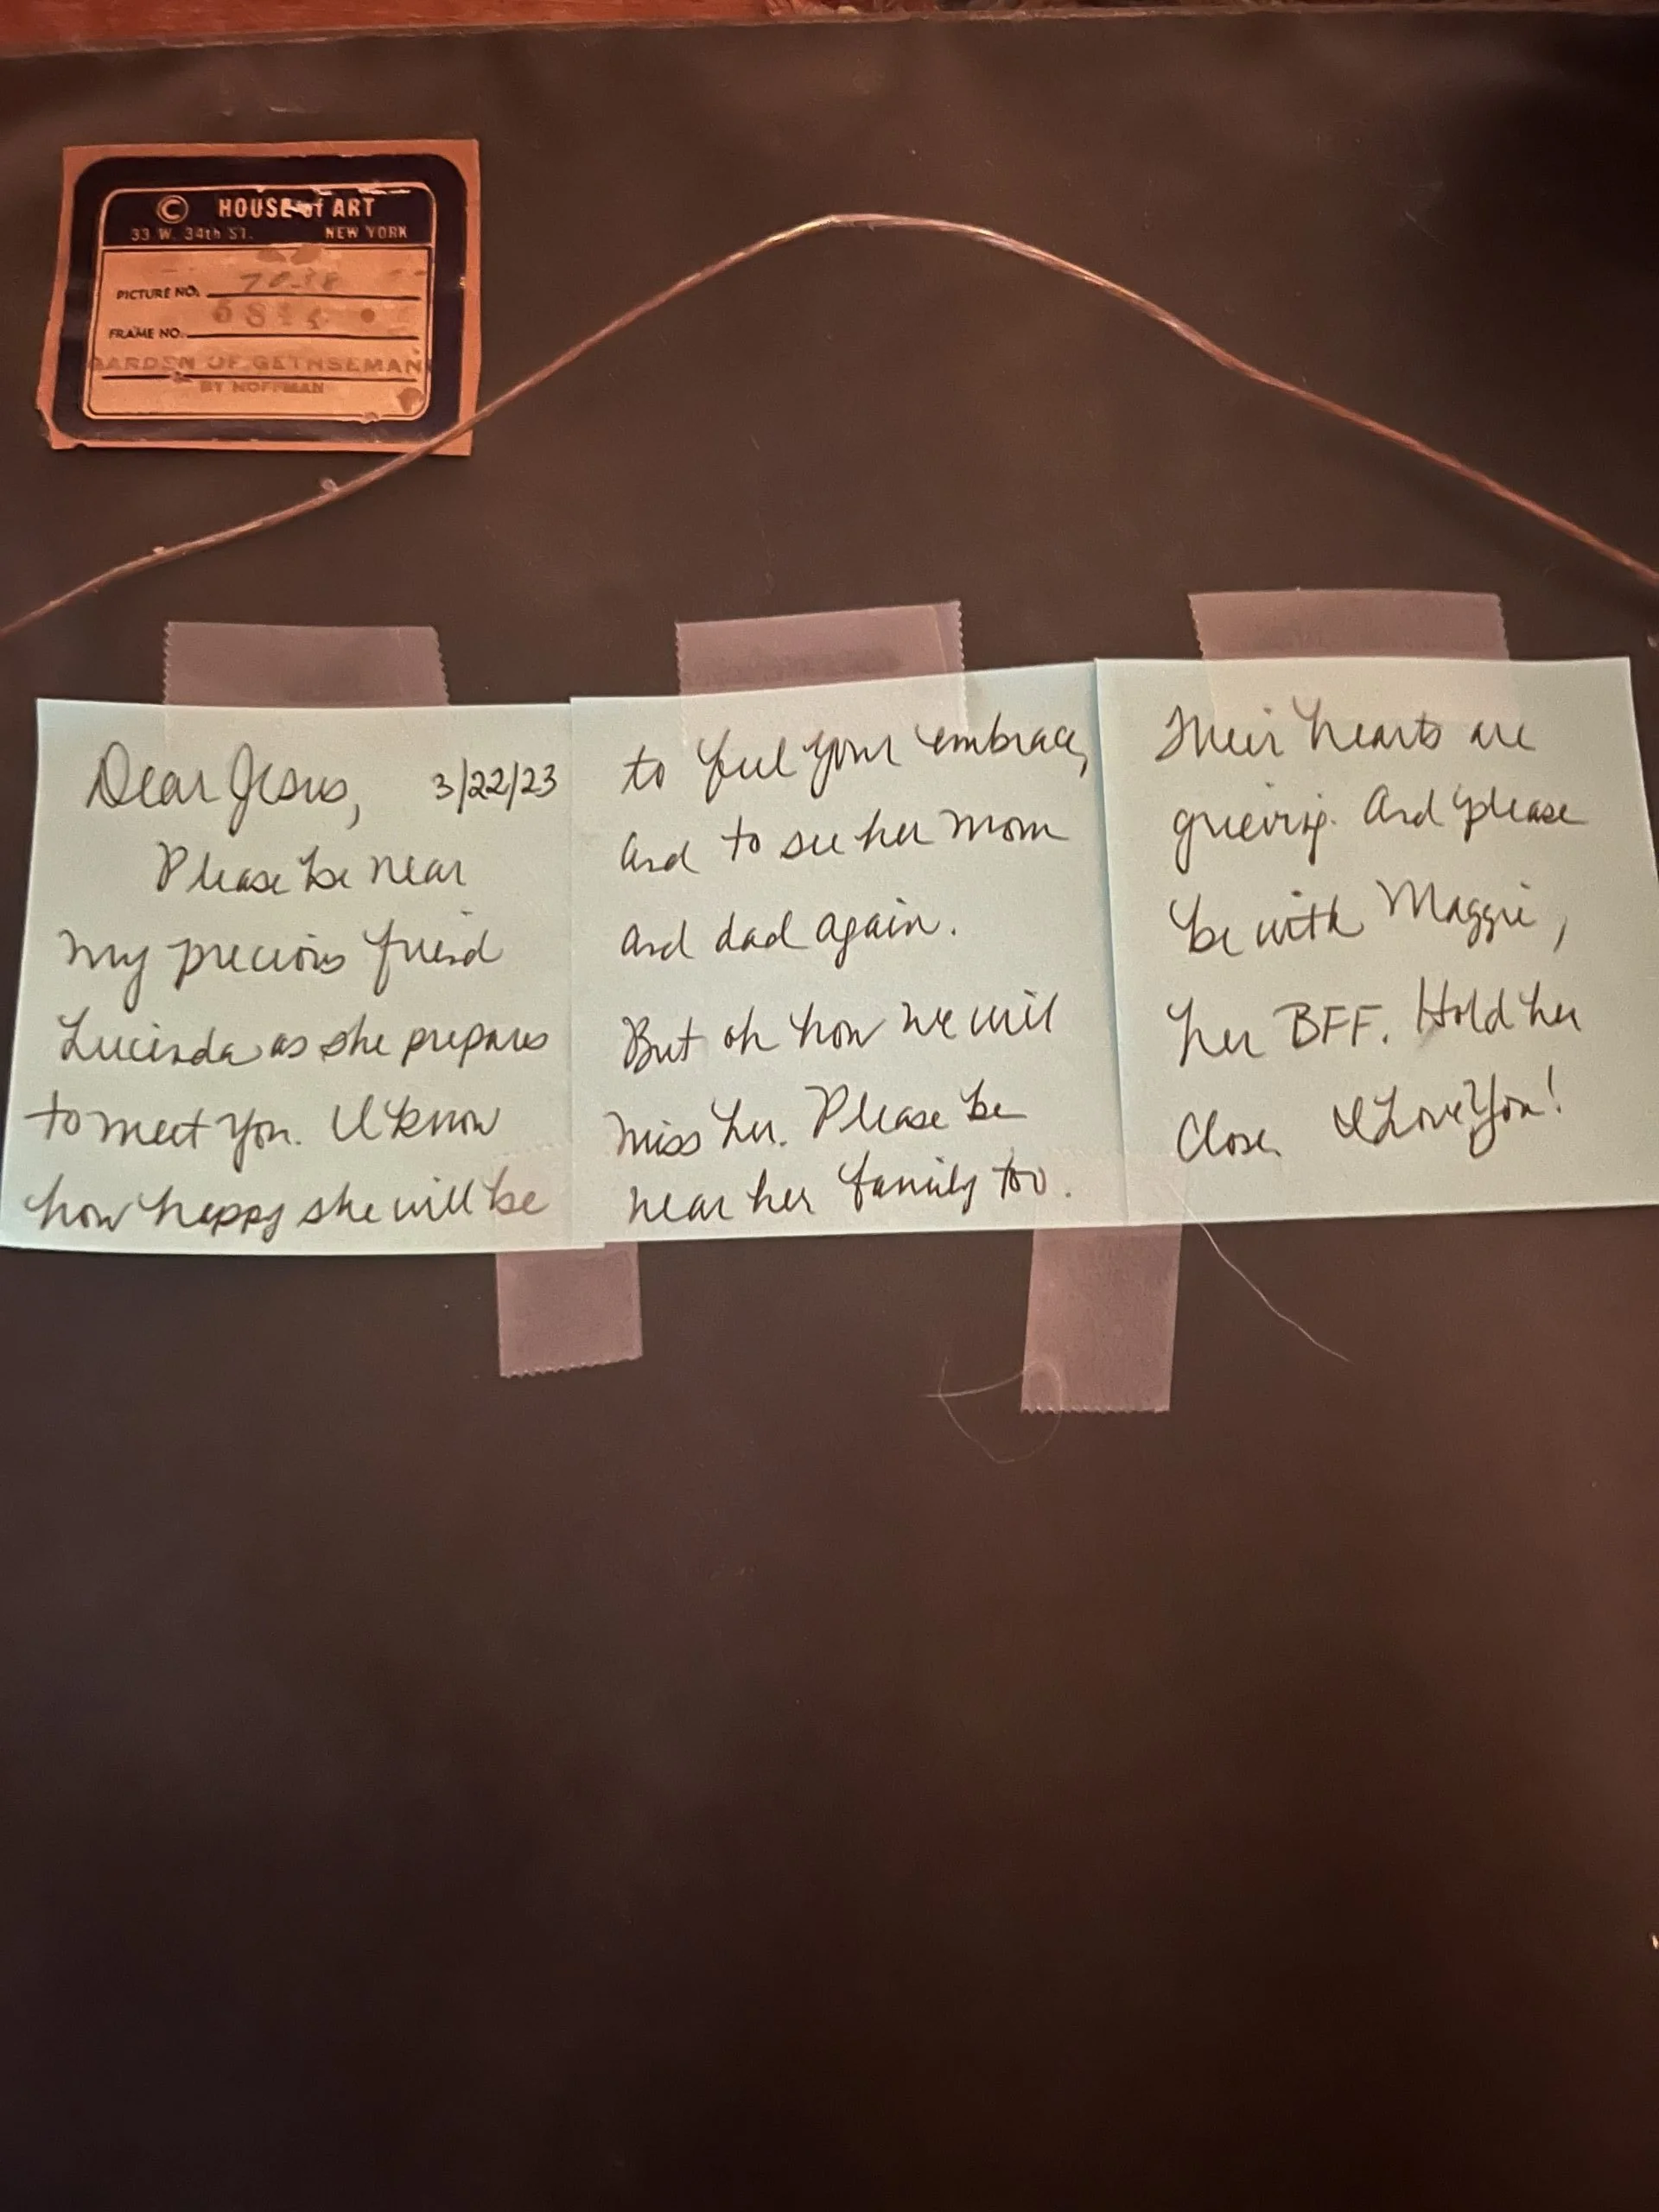 © HOUSE of ART
33 W. 34th ST. NEW YORK
PICTURE NO.
FRAME NO.
GARDEN OF GETHSEMAN
BY HOFFMAN
Dear Jesus, 3/22/23
Please be near
my precious friend
Lucinda as she prepares
to meet You. I know
how happy she will be
to feel your embrace,
and to see her mom
and dad again.
But oh how we will
miss her. Please be
near her family too.
Their hearts are
grieving. And please
be with Maggie,
her BFF. Hold her
close. I Love You!